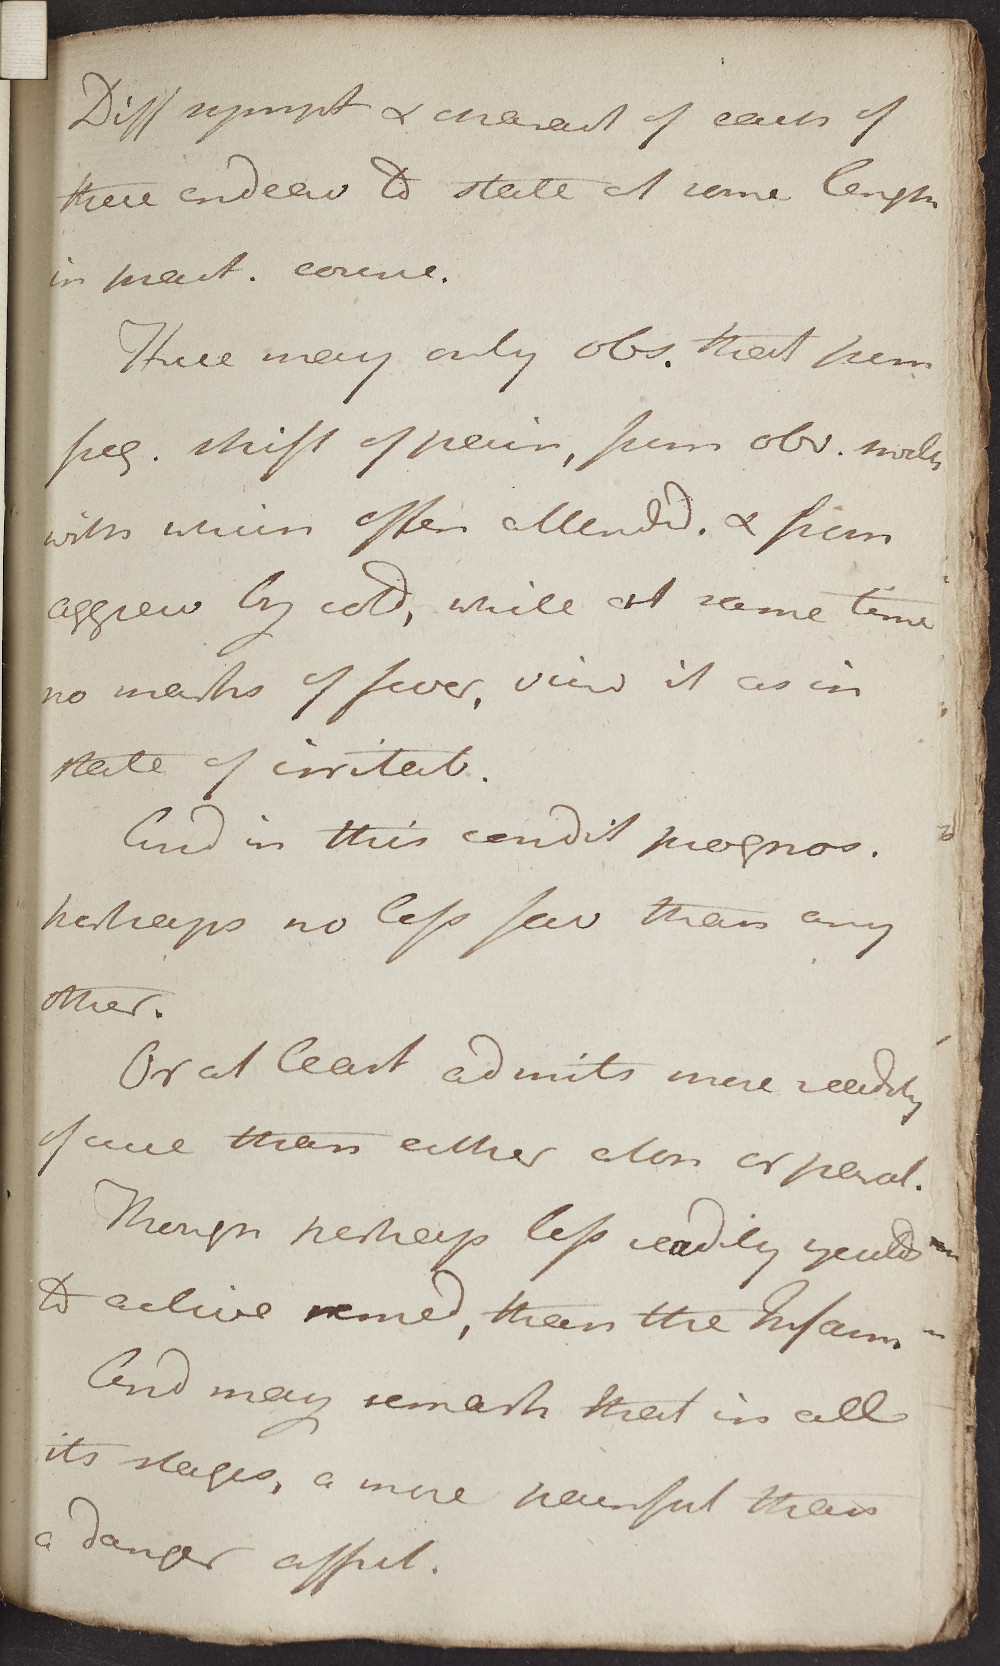 Diff sympt & charact of each of
these endeav to state at some length
in pract. course.
Here may only obs. that from
freq. shift of pain, from obv. swells
with which often attended. & from
aggrav by cold, while at same time
no marks of fever, view it as in
state of irritat.
And in this condit prognos.
perhaps no less fav than any
other.
Or at least admits more readily
of cure than either aton or paral.
Though perhaps less readily yields
to active remed, than the Inflam
And may remark that in all
its stages, a more painful than
a danger affect.